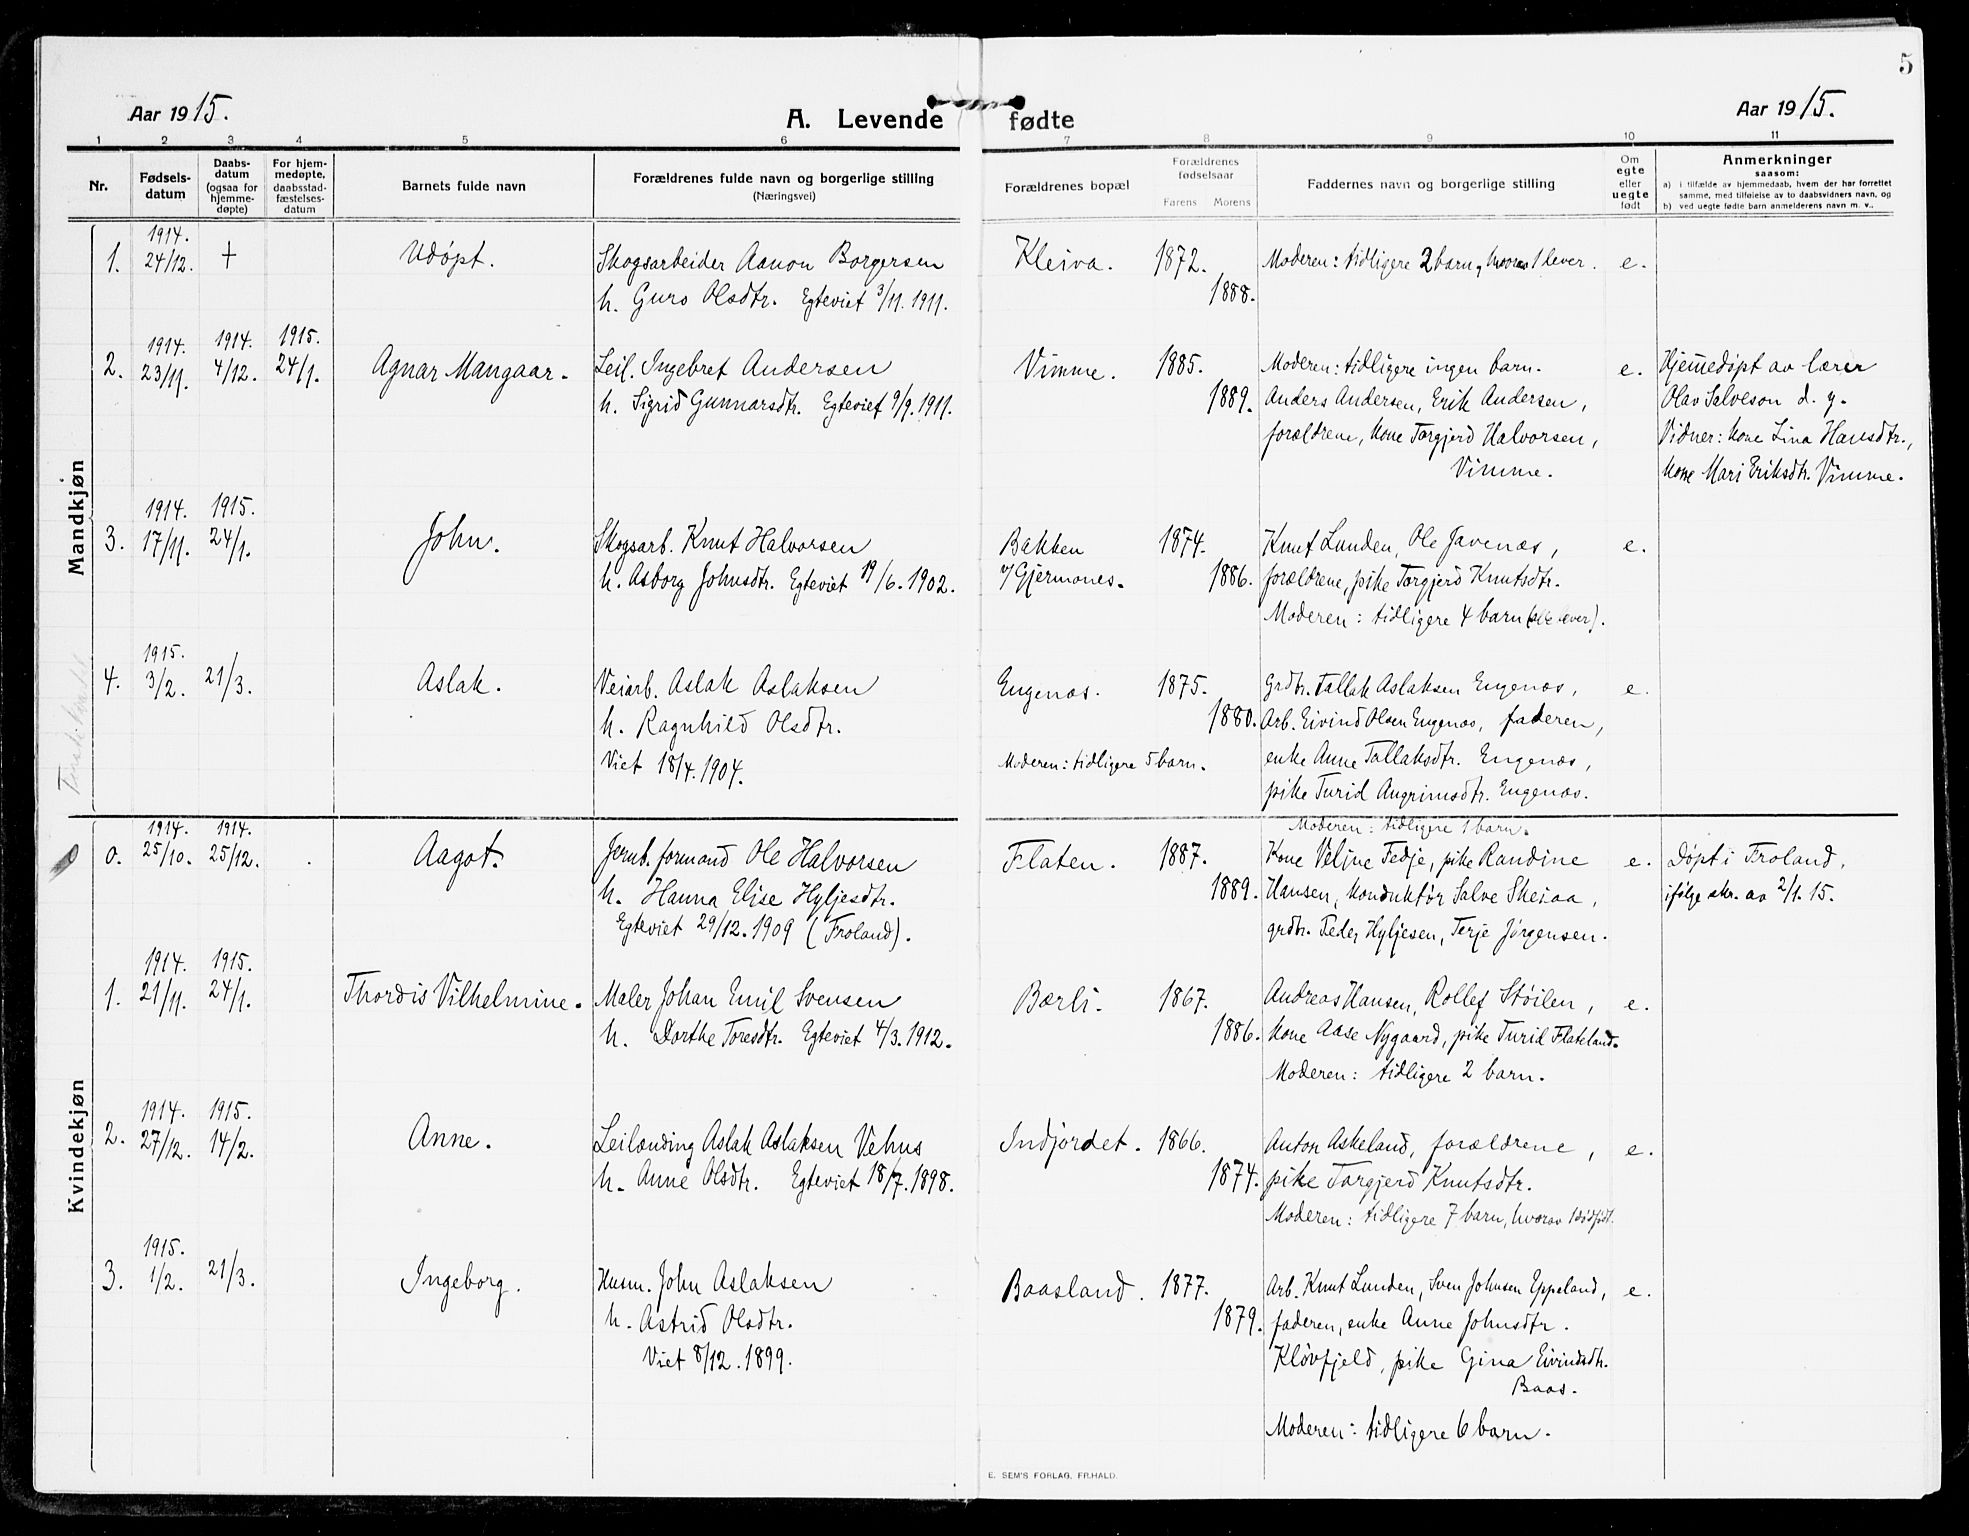 5
Aar 1915.
A. Levende fødte
Aar 1915.
1 2 3 4 5 6 7 8 9 10 11
Nr.
Fødsels-
datum
Daabs-
datum
(ogsaa for
hjemme-
døpte)
For hjem-
medøpte,
daabsstad-
fæstelses-
datum
Barnets fulde navn
Forældrenes fulde navn og borgerlige stilling
(Næringsvei)
Forældrenes bopæl
Forældrenes
fødselsaar
Farens Morens
Faddernes navn og borgerlige stilling
Om
egte
eller
uegte
født
Anmerkninger
saasom:
a) i tilfælde av hjemmedaab, hvem der har forrettet
samme, med tilføielse av to daabsvidners navn, og
b) ved uegte fødte barn anmelderens navn m. v..
Mandkjøn
1. 1914. 24/12. + Udøpt.
Skogsarbeider Aanon Borgersen
h. Guro Olsdtr. Egteviet 3/11. 1911.
Kleiva. 1872. 1888.
Moderen: tidligere 2 barn, hvorav 1 lever. e.
2. 1914. 23/11. 1914. 4/12. 1915. 24/1. Agnar Mangaar.
Leil. Ingebret Andersen
h. Sigrid Gunnarsdtr. Egteviet 9/9. 1911.
Vimme. 1885. 1889.
Moderen: tidligere ingen barn. e.
Anders Andersen, Erik Andersen,
forældrene, kone Torgjerd Halvorsen,
Vimme.
Hjemmedøpt av lærer
Olav Salveson d. y.
Vidner: kone Lina Hansdtr.,
kone Mari Eriksdtr. Vimme.
3. 1914. 17/11. 1915. 24/1. John.
Skogsarb. Knut Halvorsen
h. Asborg Johnsdtr. Egteviet 19/6. 1902.
Bakken
v/Gjermones. 1874. 1886.
Knut Lunden, Ole Javenæs, e.
forældrene, pike Torgjerd Knutsdtr.
Moderen: tidligere 4 barn (alle lever).
4. 1915. 3/2. 21/3. Aslak.
Veiarb. Aslak Aslaksen
h. Ragnhild Olsdtr.
Viet 18/4. 1904.
Engenæs. 1875. 1880.
Moderen: tidligere 5 barn.
Grdbr. Tallak Aslaksen Engenæs, e.
Arb. Eivind Olsen Engenæs, faderen,
enke Anne Tallaksdtr. Engenæs,
pike Turid Angrimsdtr. Engenæs.
Kvindekjøn
0. 1914. 25/10. 1914. 25/12. Aagot.
Jernb. formand Ole Halvorsen
h. Hanna Elise Hyljesdtr.
Egteviet 29/12. 1909 (Froland).
Flaten. 1887. 1889.
Moderen: tidligere 1 barn.
Kone Veline Fedje, pike Randine e.
Hansen, konduktør Salve Skeiaa,
grdbr. Peder Hyljesen, Terje Jørgensen.
Døpt i Froland,
ifølge skr. av 2/1. 15.
1. 1914. 21/11. 1915. 24/1. Thordis Vilhelmine.
Maler Johan Emil Svensen
h. Dorthe Toresdtr. Egteviet 4/3. 1912.
Bærli. 1867. 1886.
Andreas Hansen, Rollef Støilen, e.
kone Aase Nygaard, pike Turid Flateland.
Moderen: tidligere 2 barn.
2. 1914. 27/12. 1915. 14/2. Anne.
Leilænding Aslak Aslaksen Vehus
h. Anne Olsdtr. Egteviet 18/7. 1898.
Indjordet. 1866. 1874.
Anton Askeland, forældrene, e.
pike Torgjerd Knutsdtr.
Moderen: tidligere 7 barn, hvorav 1 dødfødt.
3. 1915. 1/2. 21/3. Ingeborg.
Husm. John Aslaksen
h. Astrid Olsdtr.
Viet 8/12. 1899.
Baasland. 1877. 1879.
Arb. Knut Lunden, Sven Johnsen Eppeland, e.
faderen, enke Anne Johnsdtr.
Kløvfjeld, pike Gina Eivindsdtr.
Baas.
Moderen: tidligere 6 barn.
E. SEM'S FORLAG, FR.HALD.